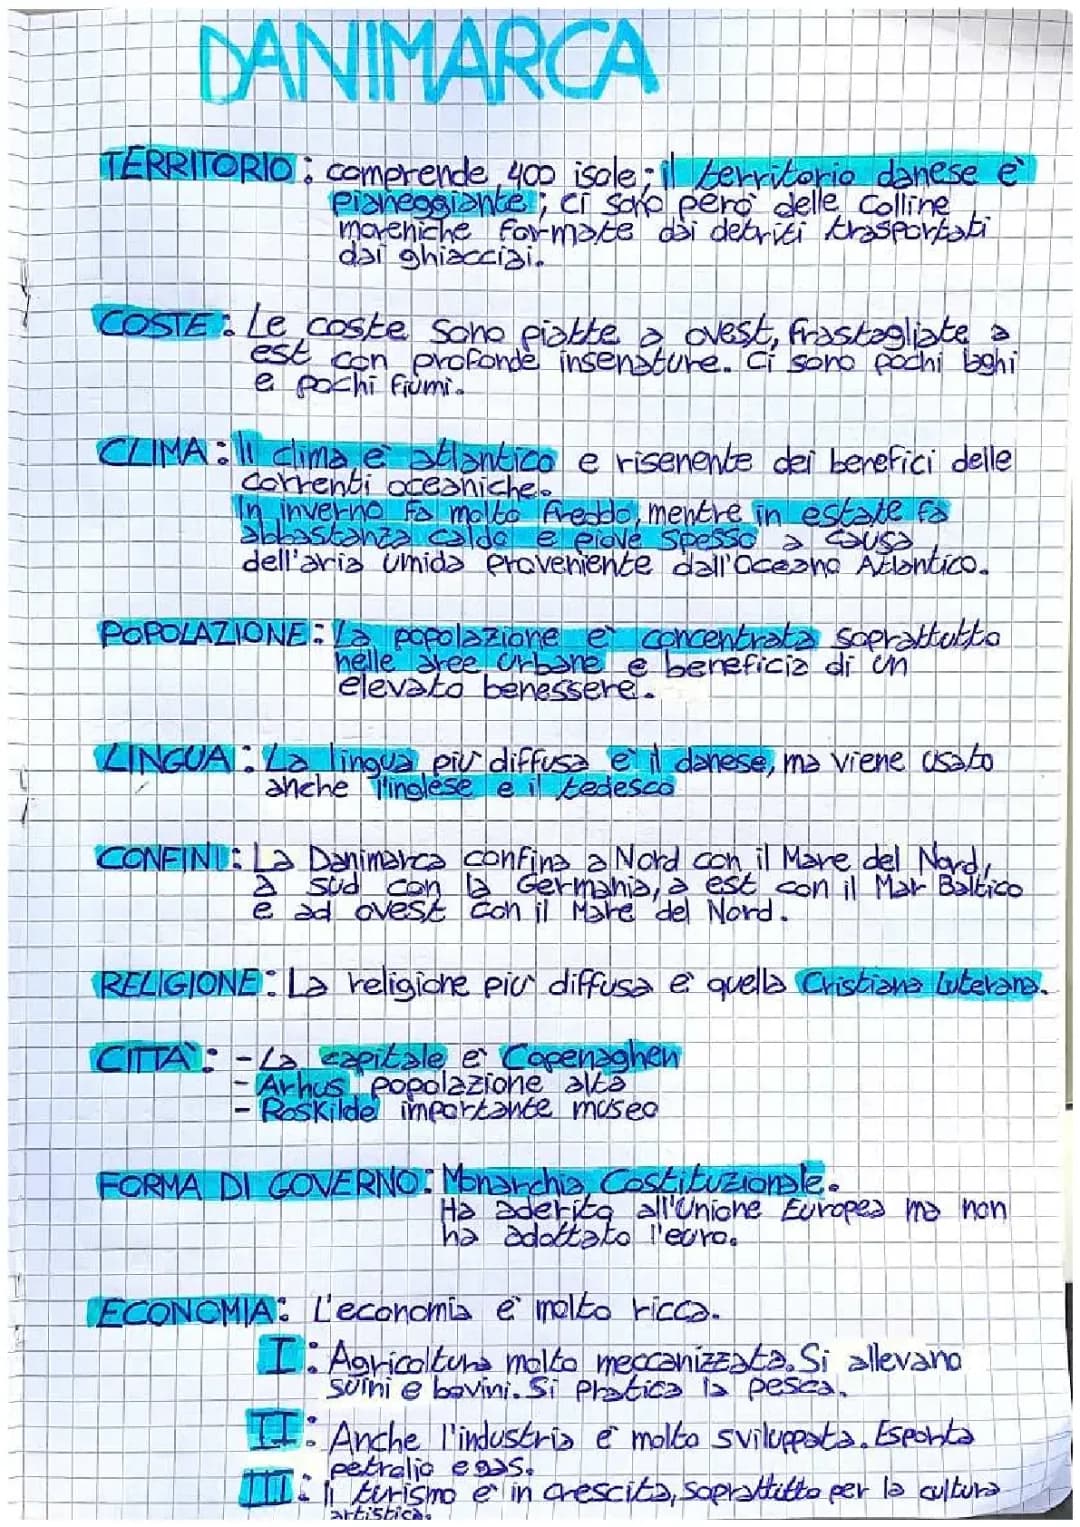 DANIMARCA
TERRITORIO: comprende 400 isole; il territorio danese è
pianeggiante; ci sono però delle Colline
moreniche formate dai detriti trasportati
dai ghiacciai.
COSTE: Le coste sono piatte a ovest, frastagliate a
est con profonde insenature. Ci sono pochi laghi
e pochi fiumi.
CLIMA: Il clima è atlantico e risenente dei benefici delle
correnti oceaniche.
In inverno fa molto freddo, mentre in estate fa
abbastanza caldo e piove spesso a causa
dell'aria umida proveniente dall'Oceano Atlantico.
POPOLAZIONE: La popolazione è concentrata soprattutto
nelle aree urbane e beneficia di un
elevato benessere.
LINGUA: La lingua più diffusa è il danese, ma viene usato
anche l'inglese e il tedesco
CONFINI: La Danimarca confina a Nord con il Mare del Nord,
a sud con la Germania, a est con il Mar Baltico
e ad ovest con il Mare del Nord.
RELIGIONE: La religione più diffusa è quella Cristiana Luterana.
CITTÀ: - La capitale è Copenaghen
- Arhus popolazione alta
- Roskilde importante museo
FORMA DI GOVERNO: Monarchia Costituzionale.
Ha aderito all'Unione Europea ma non
ha adottato l'euro.
ECONOMIA: L'economia è molto ricca.
I: Agricoltura molto meccanizzata. Si allevano
suini e bovini. Si pratica la pesca.
II: Anche l'industria è molto sviluppata. Esporta
petrolio e gas.
III: Il turismo è in crescita, soprattutto per la cultura
artistica.